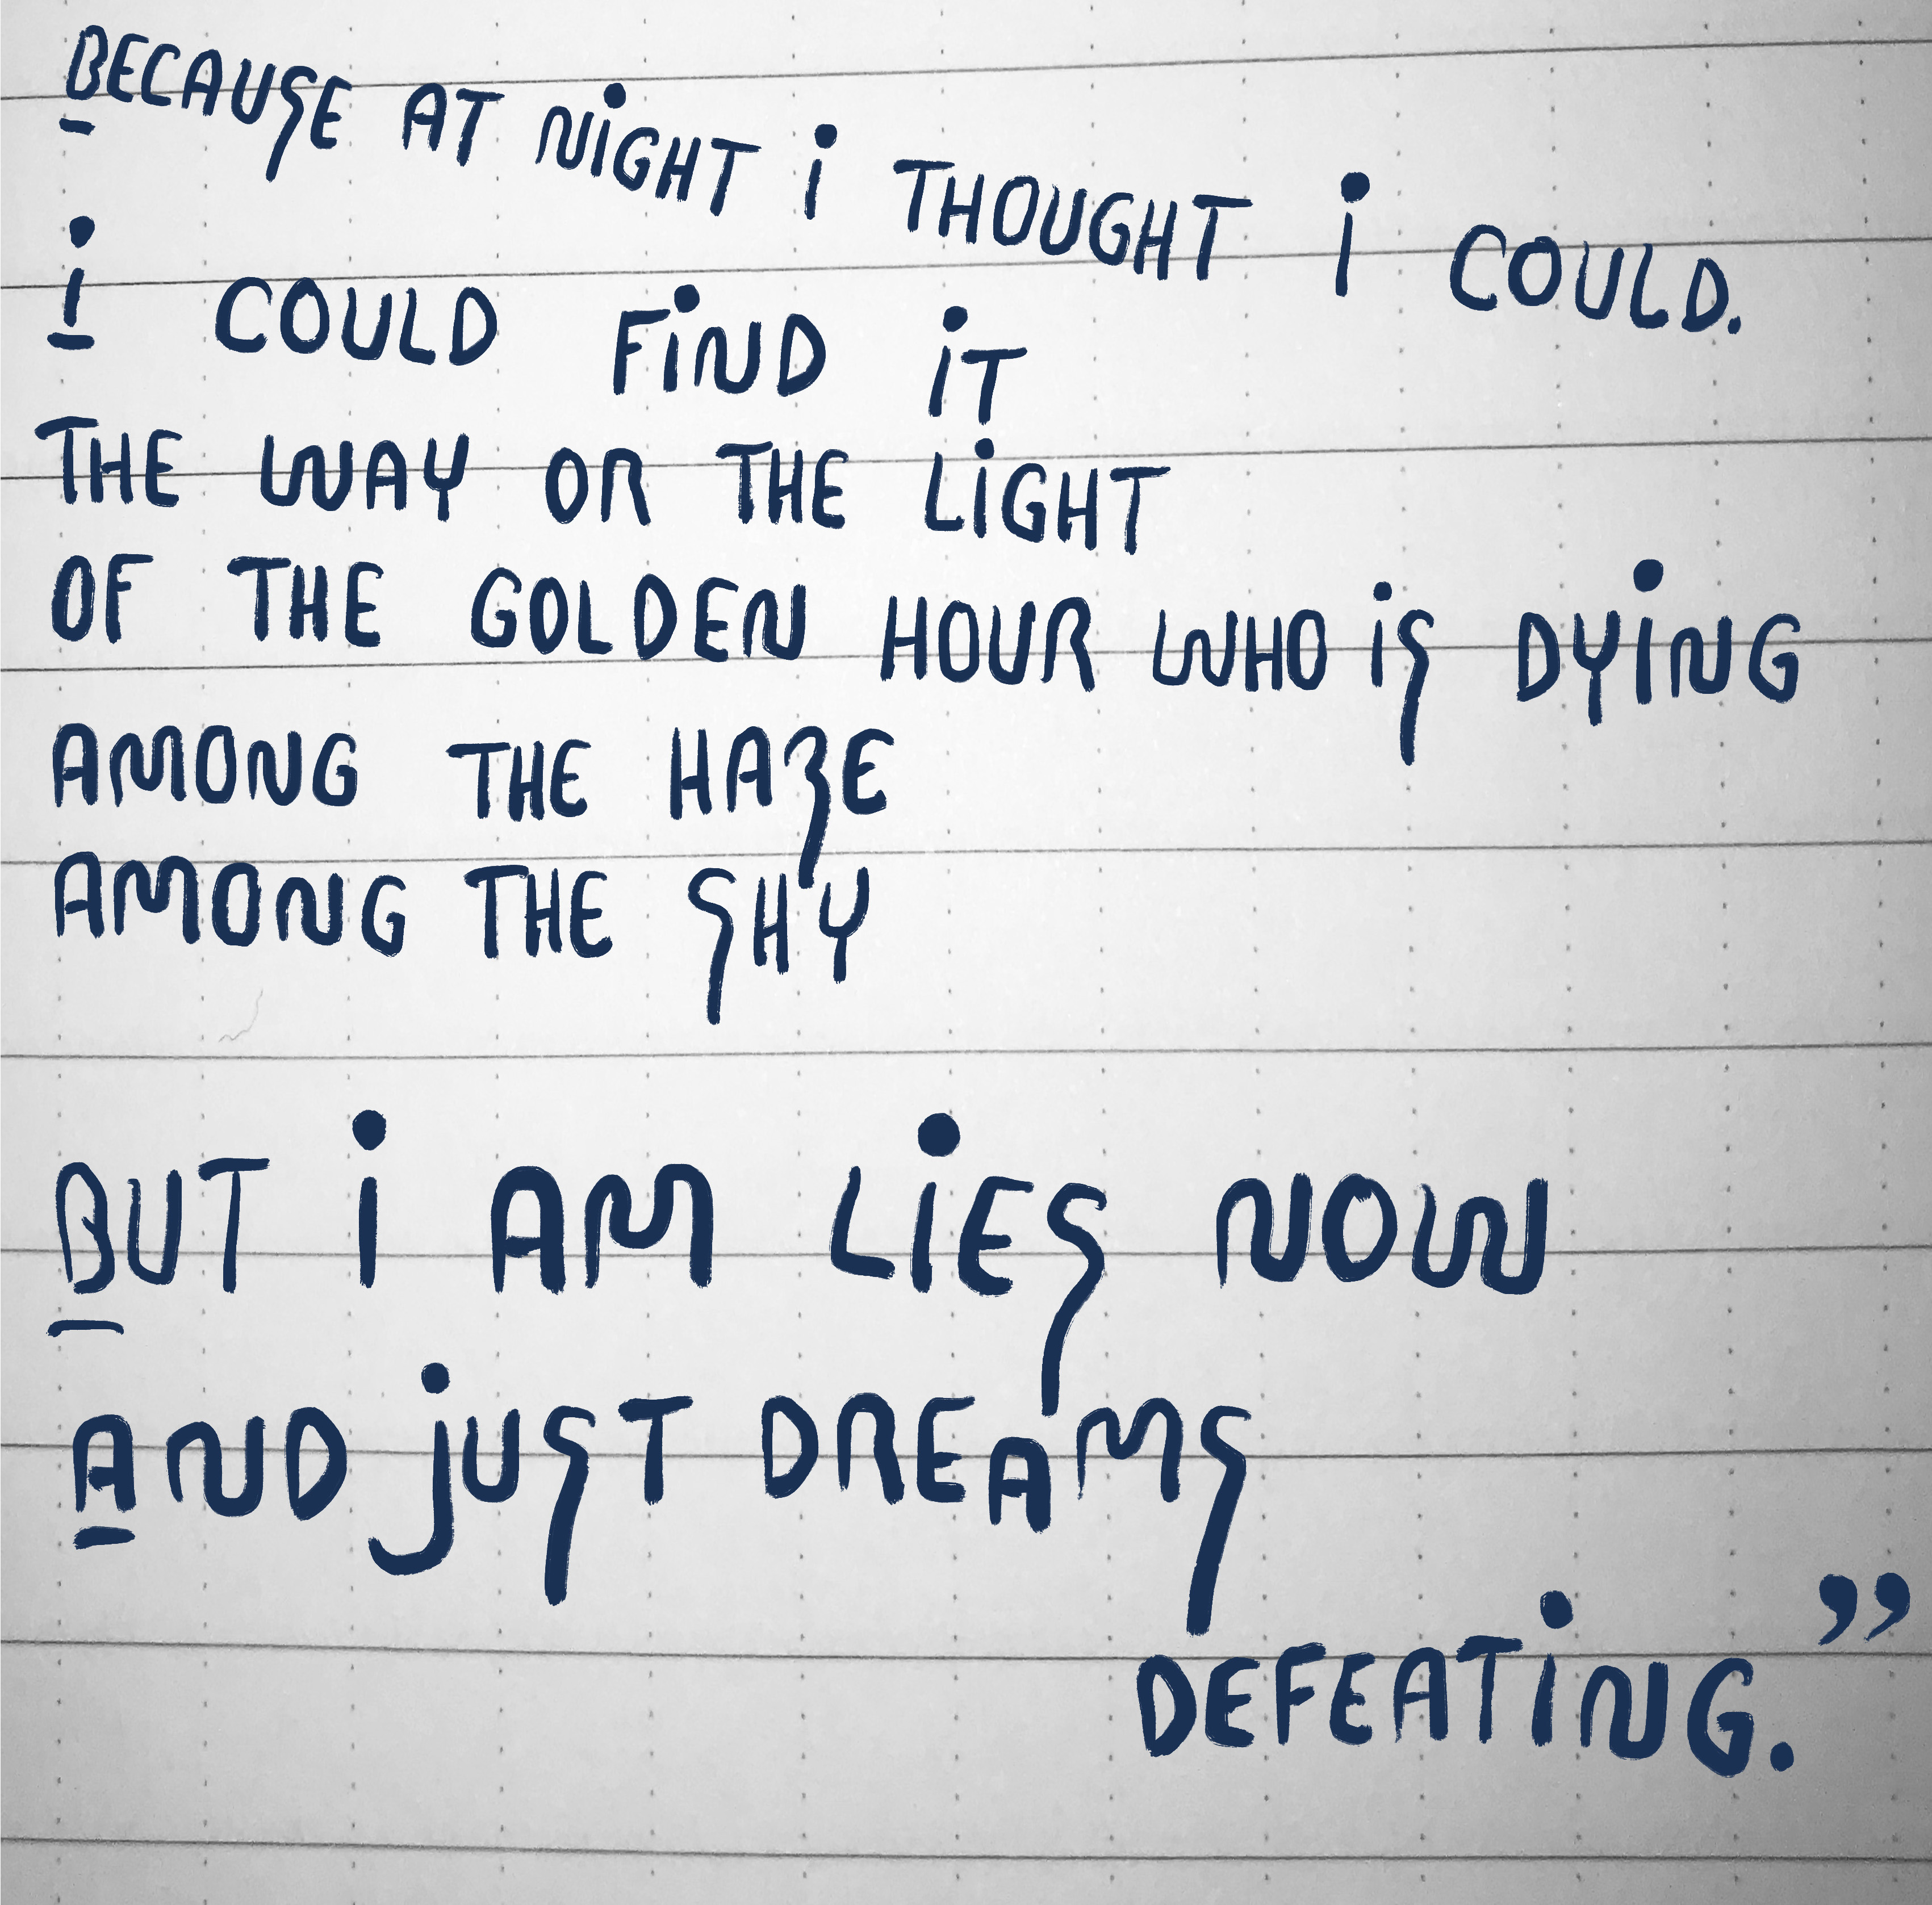 BECAUSE AT NiGHT i THOUGHT i COULD.
i COULD FiND iT
THE WAY OR THE LiGHT
OF THE GOLDEN HOUR WHO iS DYiNG
AMONG THE HAZE
AMONG THE SHY
BUT i AM LiES NOW
AND jUST DREAMS
DEFEATiNG.”